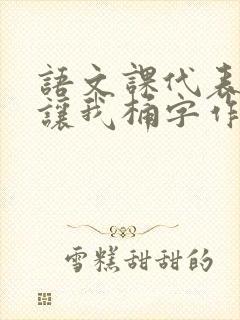 語文課代表
讓我桶字作
雪糕甜甜的